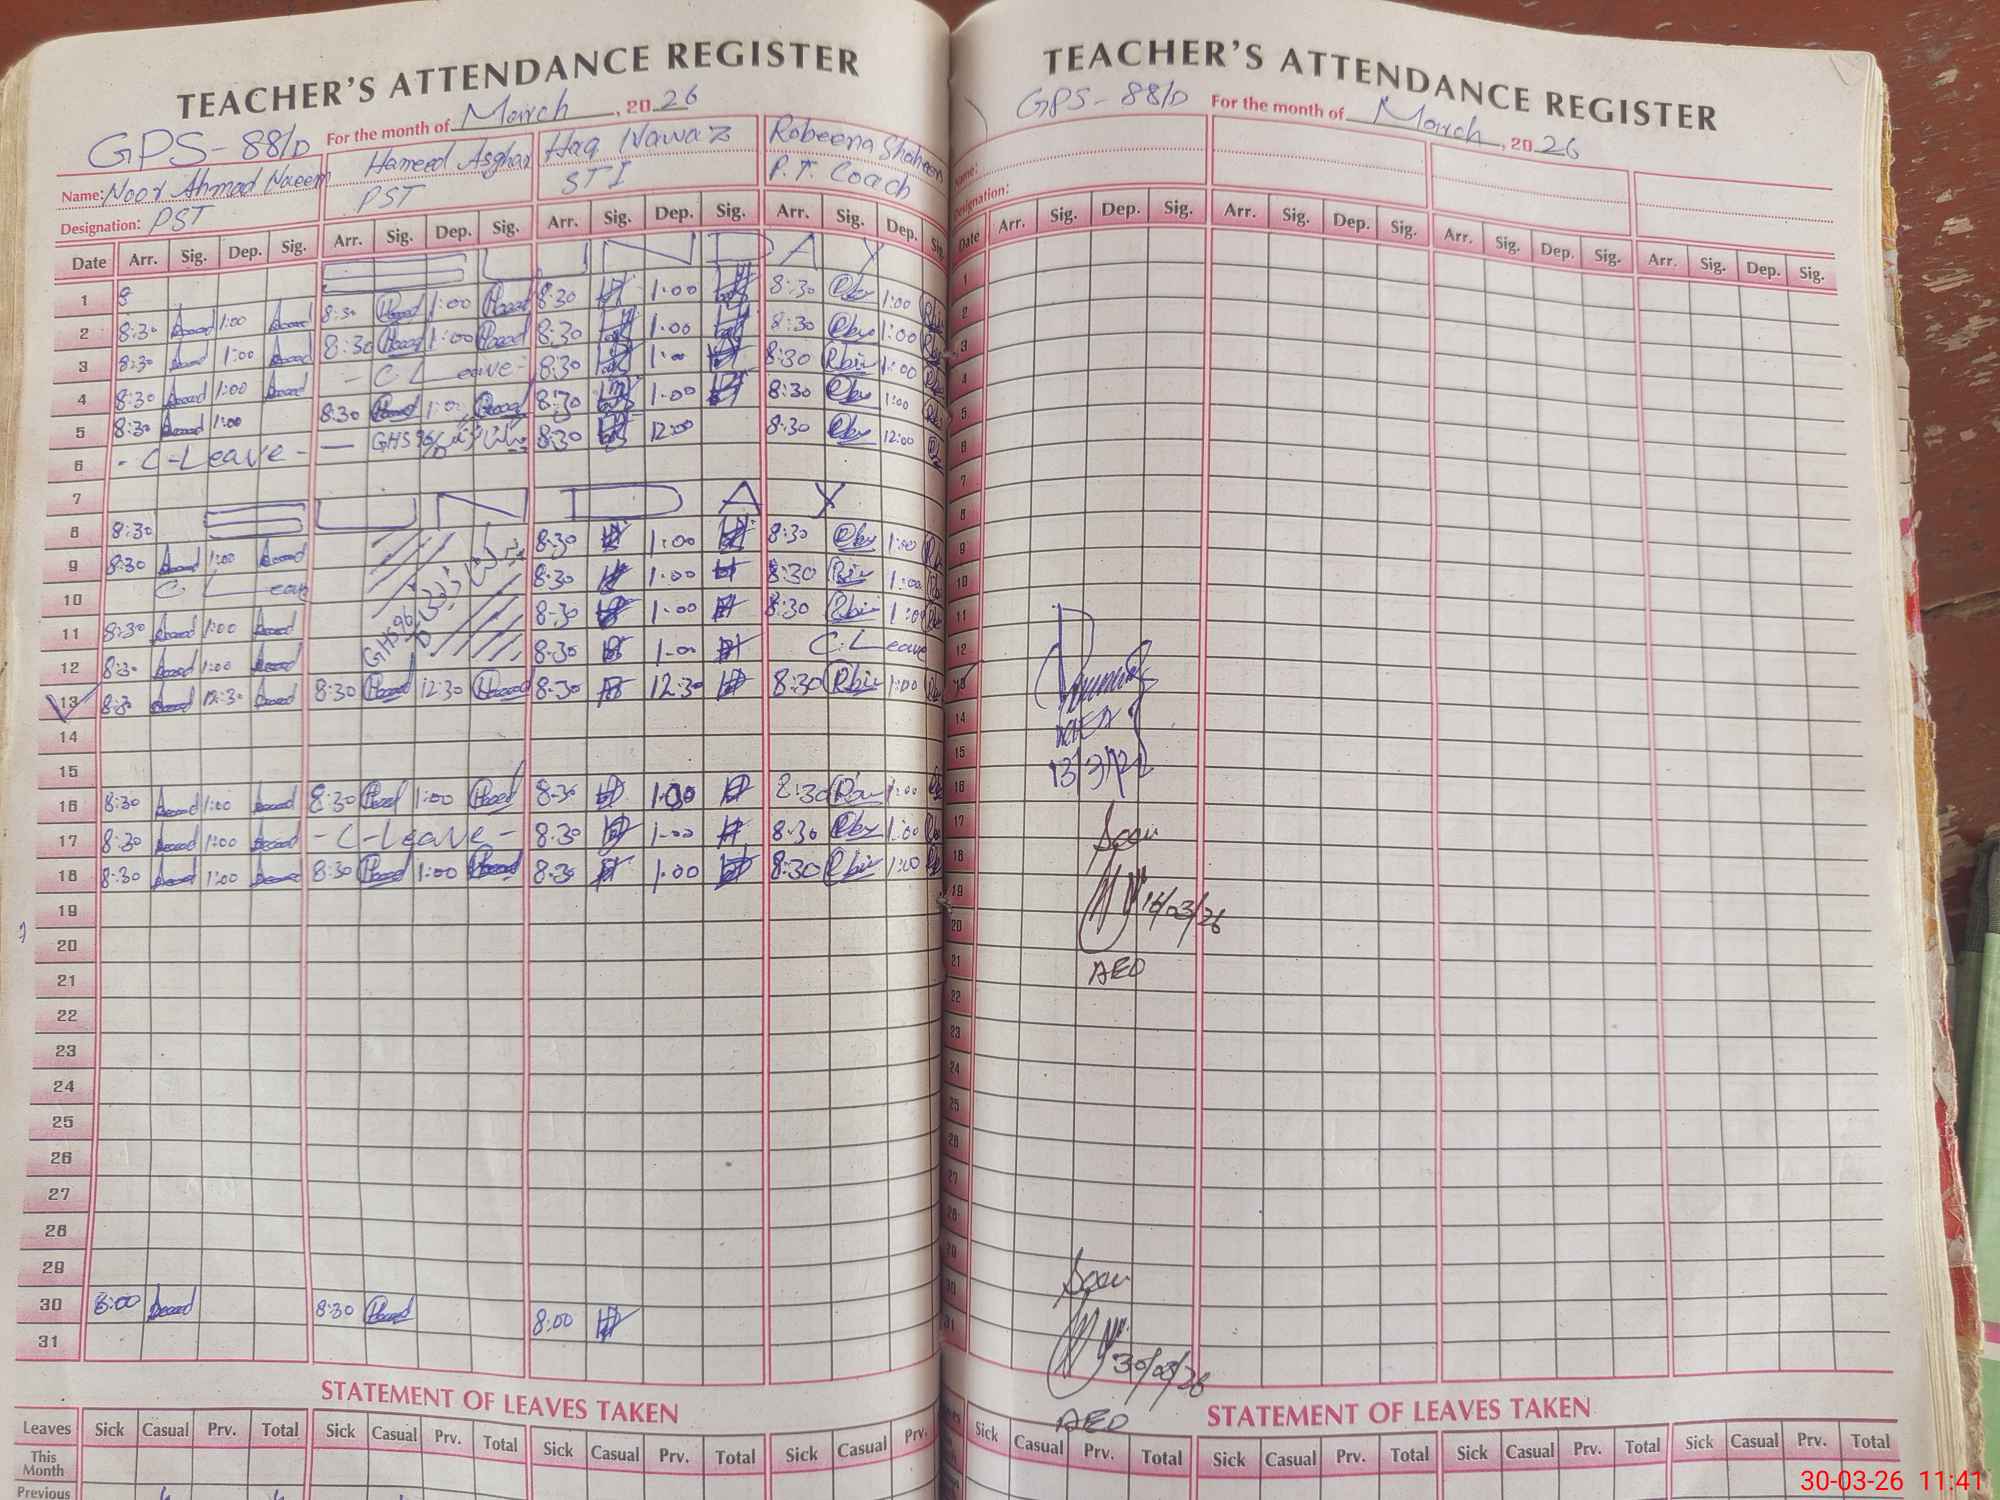 TEACHER'S ATTENDANCE REGISTER
GPS-88/D For the month of March, 2026
Name: Noor Ahmad Naeem Hameed Asghar Haq Nawaz Robeena Shaheen
Designation: PST PST STI P.T. Coach
Date Arr. Sig. Dep. Sig. Arr. Sig. Dep. Sig. Arr. Sig. Dep. Sig. Arr. Sig. Dep. Sig.
1 8 SUNDAY
2 8:30 1:00 8:30 1:00 8:30 1:00 8:30 1:00
3 8:30 1:00 8:30 1:00 8:30 1:00 8:30 1:00
4 8:30 1:00 - C Leave - 8:30 1:00 8:30 1:00
5 8:30 1:00 8:30 1:00 8:30 1:00 8:30 1:00
6 - C-Leave - — GHS 96/D 8:30 12:00 8:30 12:00
7
8 8:30 SUNDAY
9 8:30 1:00 8:30 1:00 8:30 1:00
10 C Leave 8:30 1:00 8:30 1:00
11 8:30 1:00 GHS 96/D 8:30 1:00 8:30 1:00
12 8:30 1:00 8:30 1:00 C. Leave
13 8:30 12:30 8:30 12:30 8:30 12:30 8:30 1:00
14
15
16 8:30 1:00 8:30 1:00 8:30 1:00 8:30 1:00
17 8:30 1:00 - C-Leave - 8:30 1:00 8:30 1:00
18 8:30 1:00 8:30 1:00 8:30 1:00 8:30 1:00
19
20
21
22
23
24
25
26
27
28
29
30 8:00 8:30 8:00
31
STATEMENT OF LEAVES TAKEN
Leaves Sick Casual Prv. Total Sick Casual Prv. Total Sick Casual Prv. Total Sick Casual Prv.
This Month
Previous
TEACHER'S ATTENDANCE REGISTER
GPS-88/D For the month of March, 2026
Name:
Designation:
Date Arr. Sig. Dep. Sig. Arr. Sig. Dep. Sig. Arr. Sig. Dep. Sig. Arr. Sig. Dep. Sig.
1
2
3
4
5
6
7
8
9
10
11
12
13
14
15
16
17
18
19
20
21
22
23
24
25
26
27
28
29
30
31
13/3/26
Seen
16/03/26
AEO
Seen
30/03/26
AEO
STATEMENT OF LEAVES TAKEN
Sick Casual Prv. Total Sick Casual Prv. Total Sick Casual Prv. Total Sick Casual Prv. Total
30-03-26 11:41